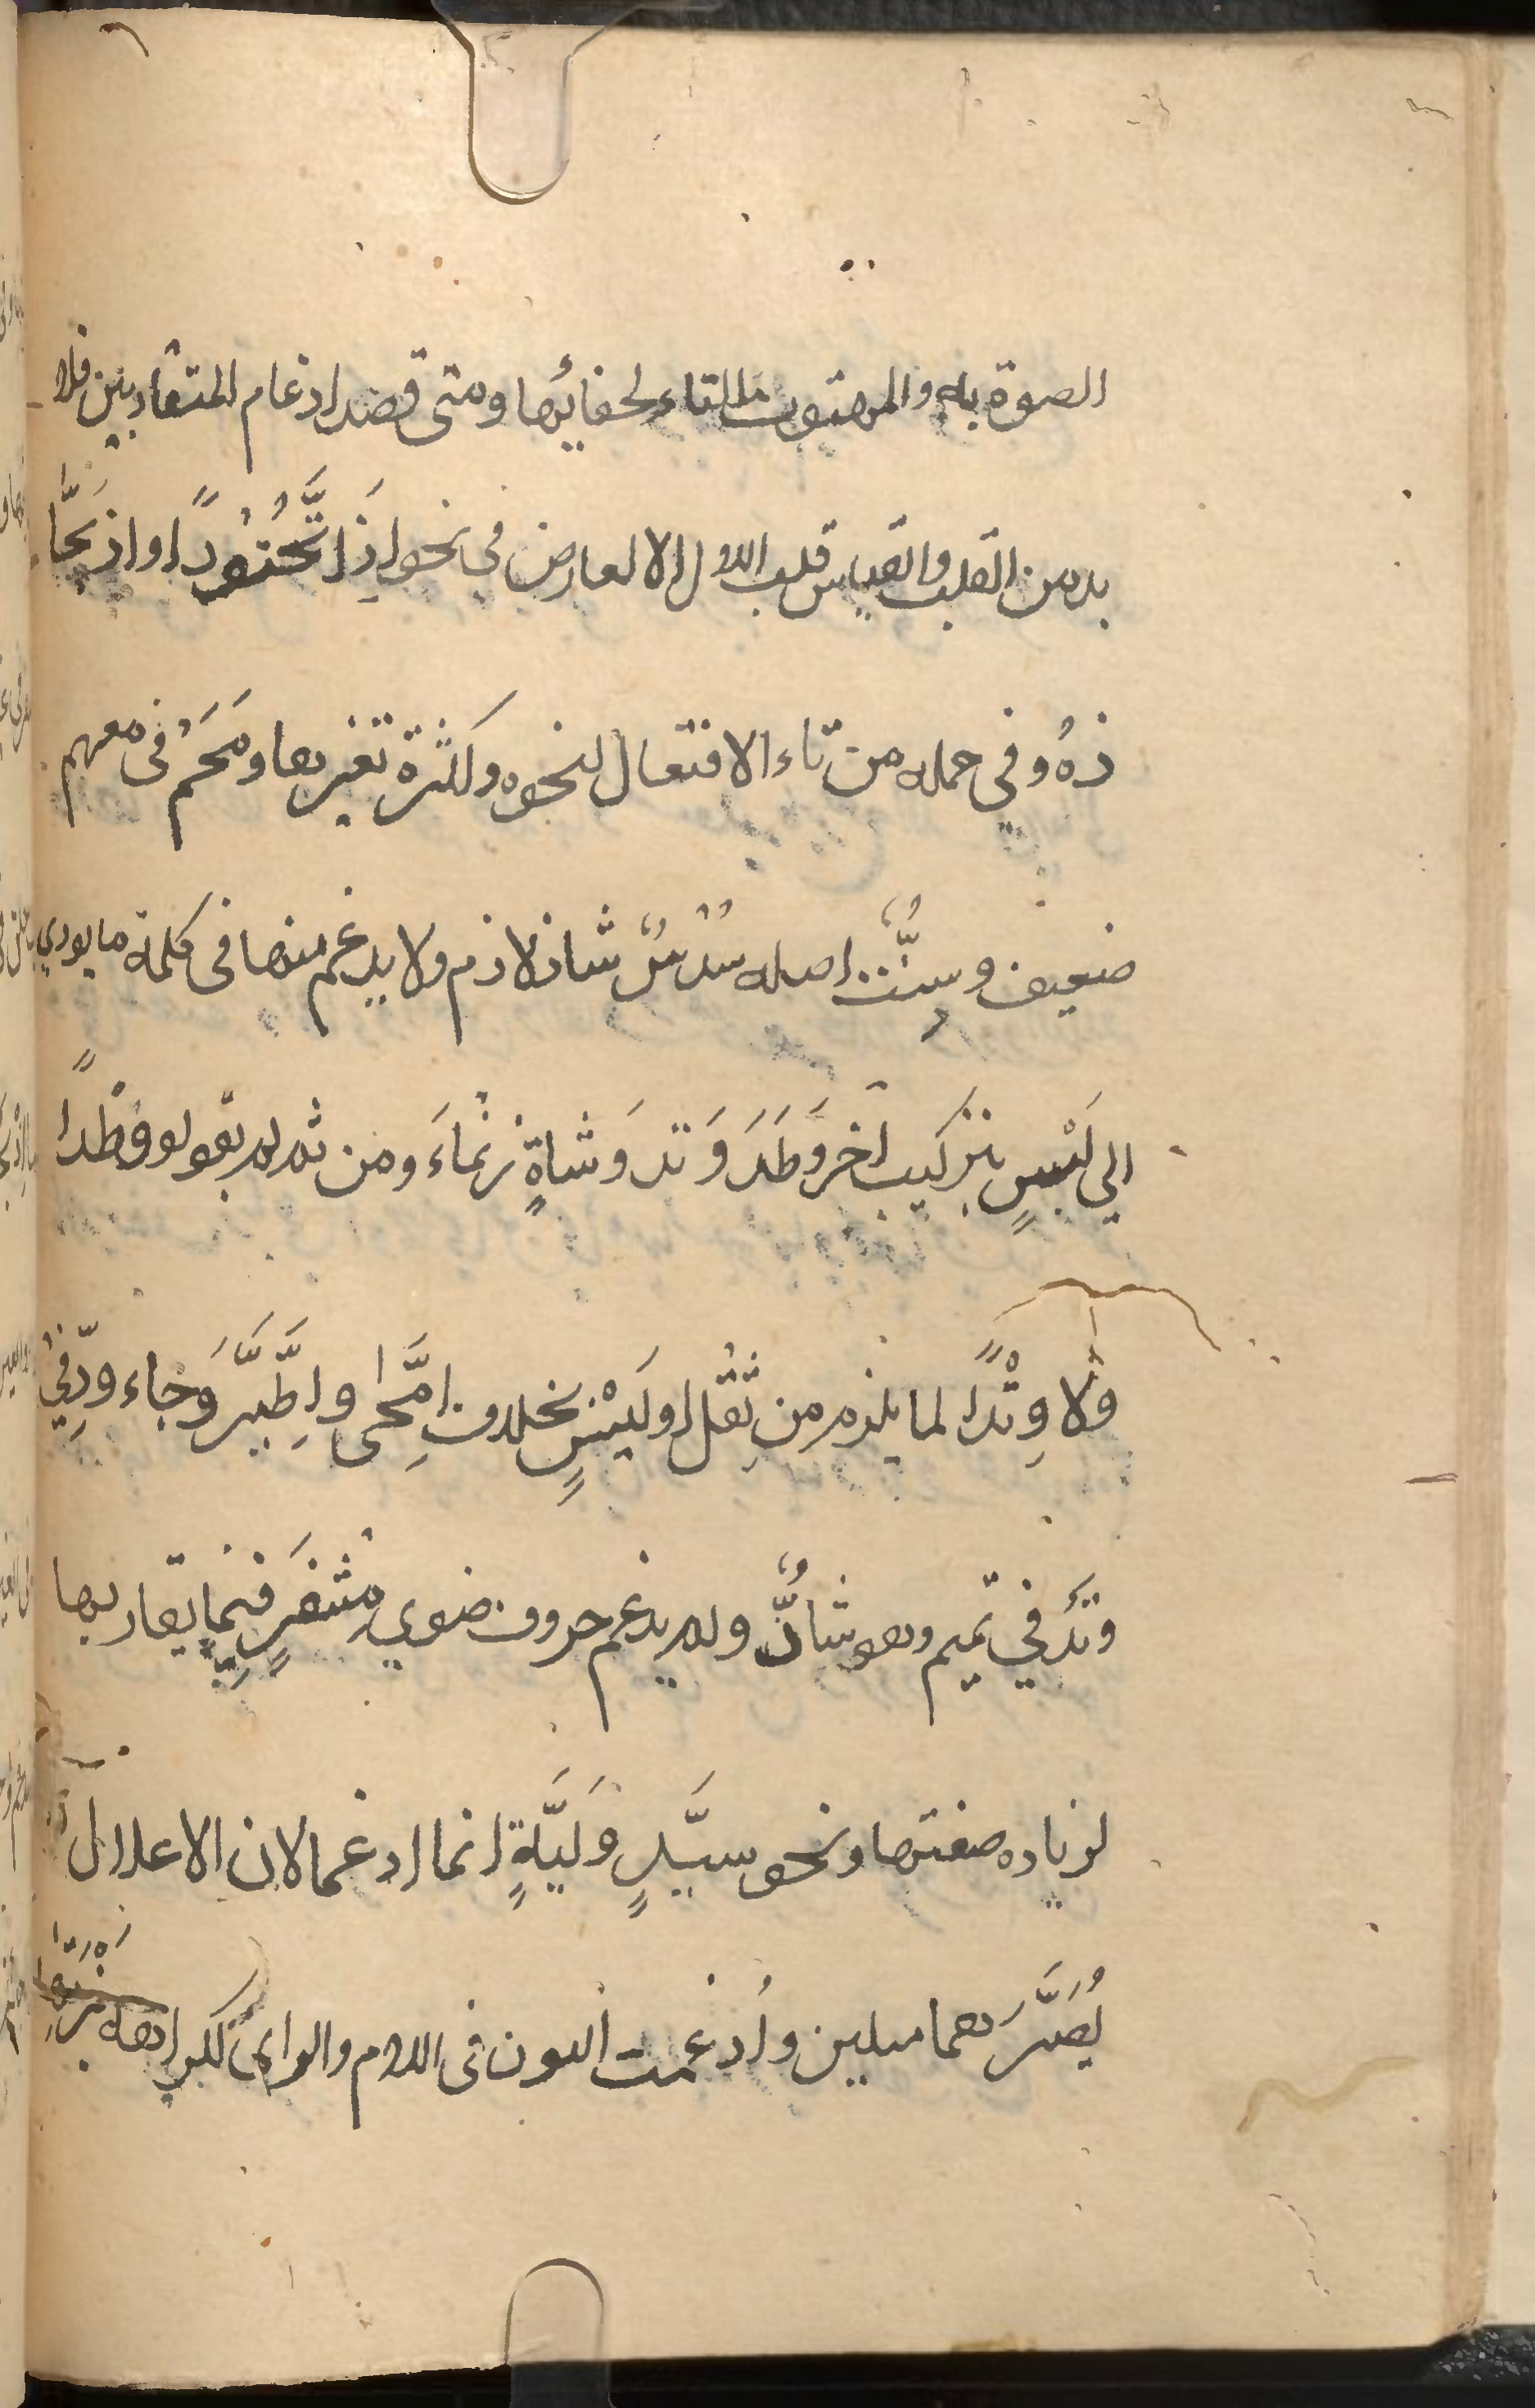 الصوة به والمهتوت التاء لخفائها ومتى قصد ادغام المتقاربين فلا
بد من القلب والقياس قلب الاول الا لعارض في نحو اذَا تَّحُتُودًا او اذبَحَّا
ذهُ وفي جمله من تاء الافتعال لنحوه وكثرة تغيرها ومَحَمْ فى معهم
ضعيف وسِتٌّ اصله سُدْسٌ شاذ لازم ولا يدغم منها فى كلمة ما يودي
الي لَبْسٍ بتركيب آخر وَطَدَ وَتدَ وَشاةٍ زنماءَ ومن ثم لم يقولو وَطْدًا
ولا وِتْدًا لما يلزم من ثِقْل او لَبْسٍ بخلاف اِمَّحٰى واِطَّيَّرَ وَجاء ودّفِيْ
وتَدَ في تميم وهو شاذٌّ ولم يدغم حروف ضوي مِشْفَرٍ فيما يقاربها
لزياده صفتها ونحو سيَّدٍ وَليَّةٍ انما ادغما لان الاعلال
يُصَيَّرَ هما مبلين واُدغمت النون فى اللام والراى لكراهه نَبْرَتها